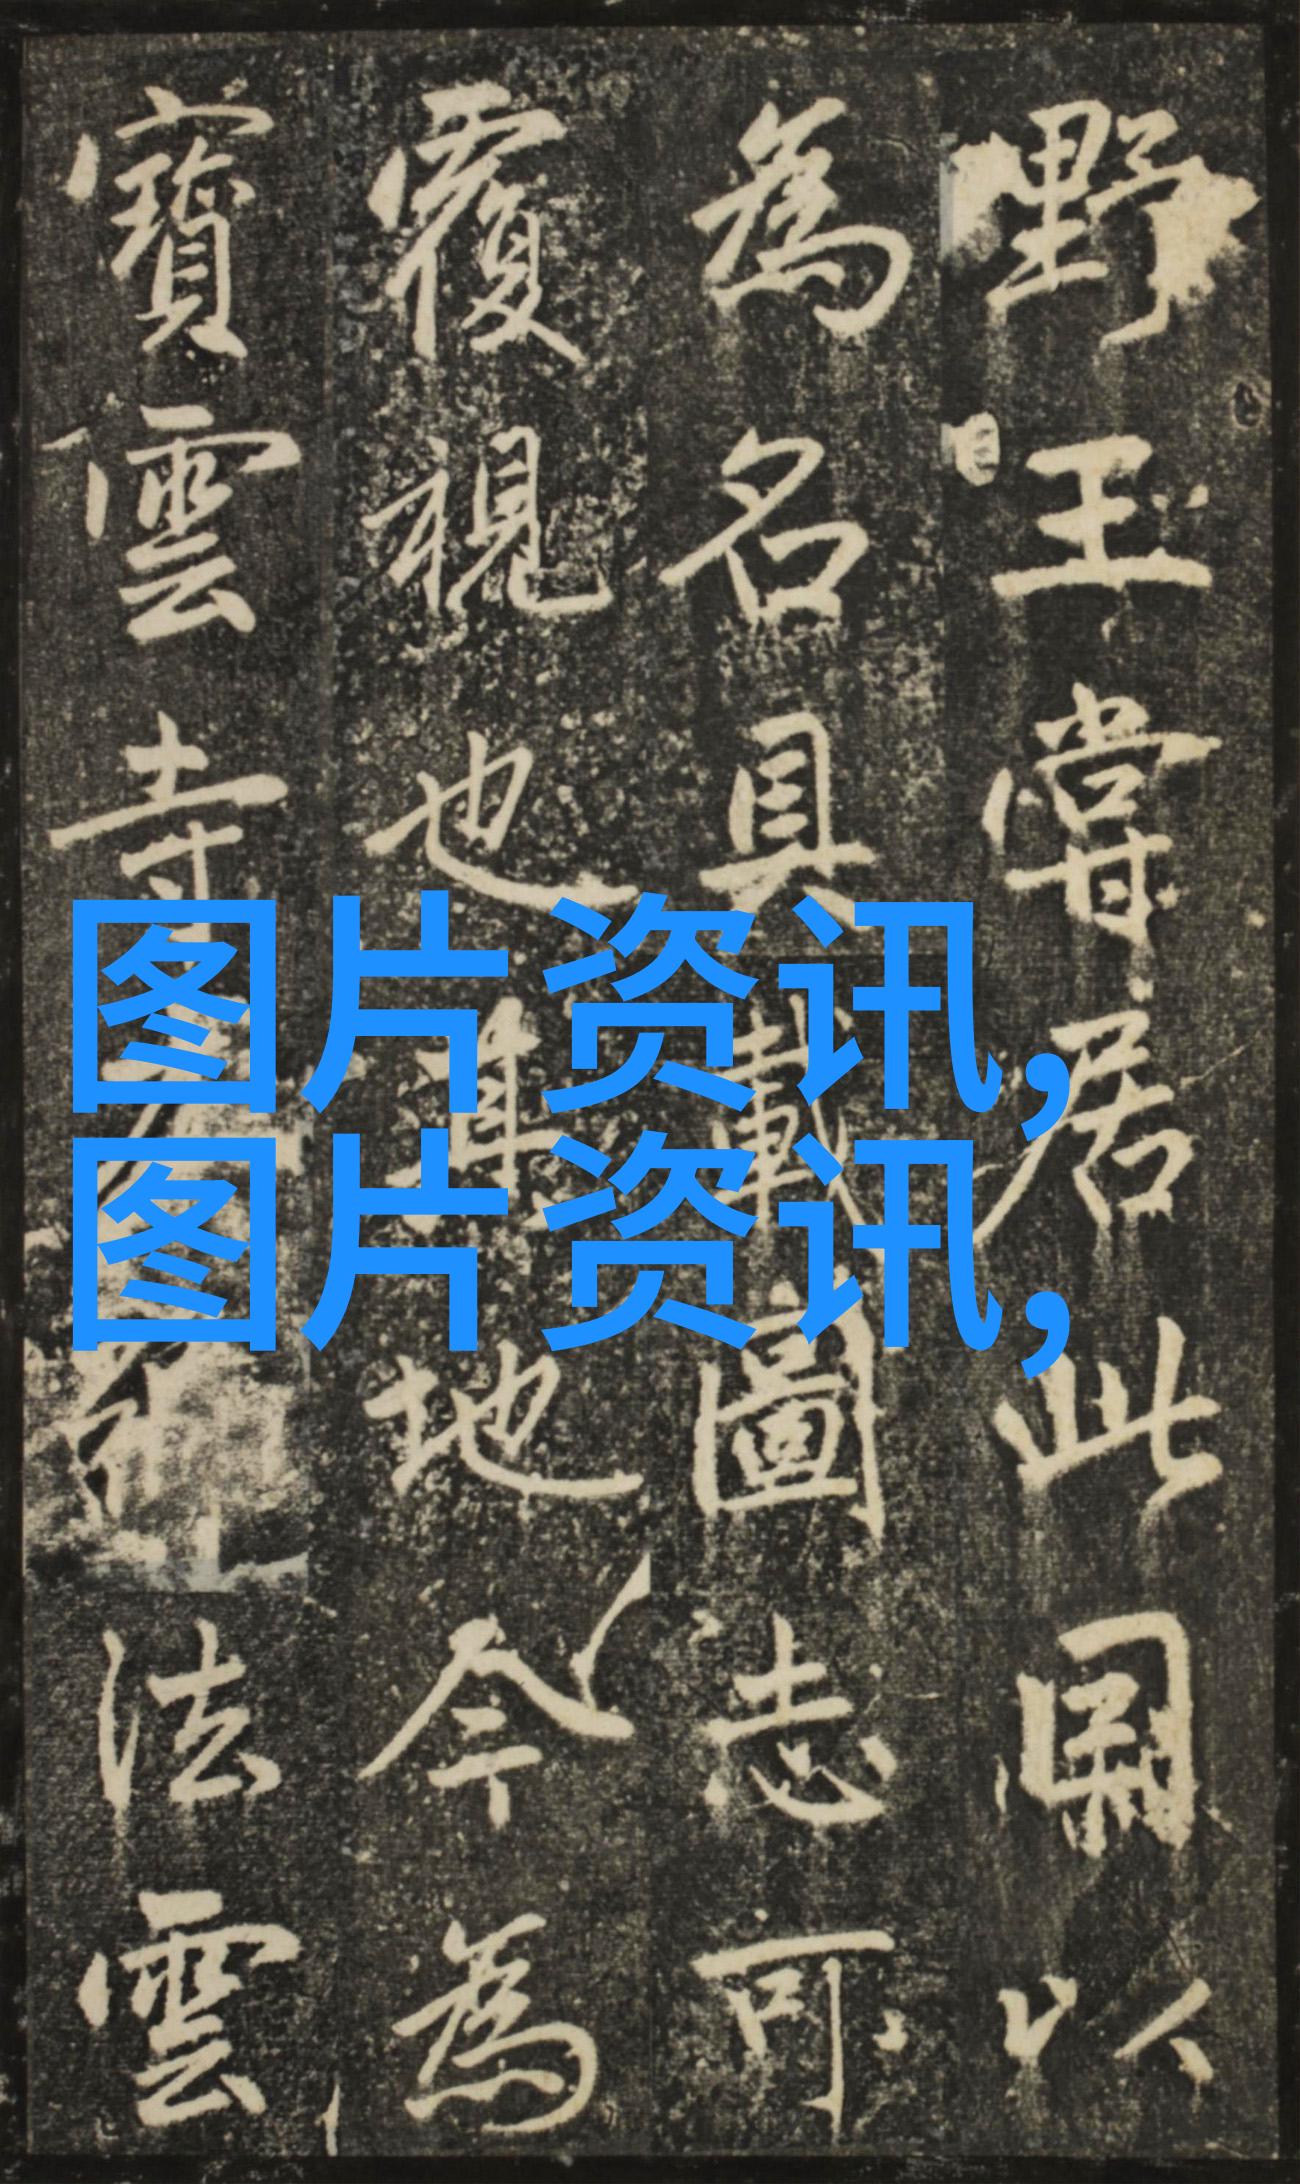 野王嘗居此因以
為名具載圖志可
覆視也其地今為
寶雲寺法雲
图片资讯,
图片资讯,